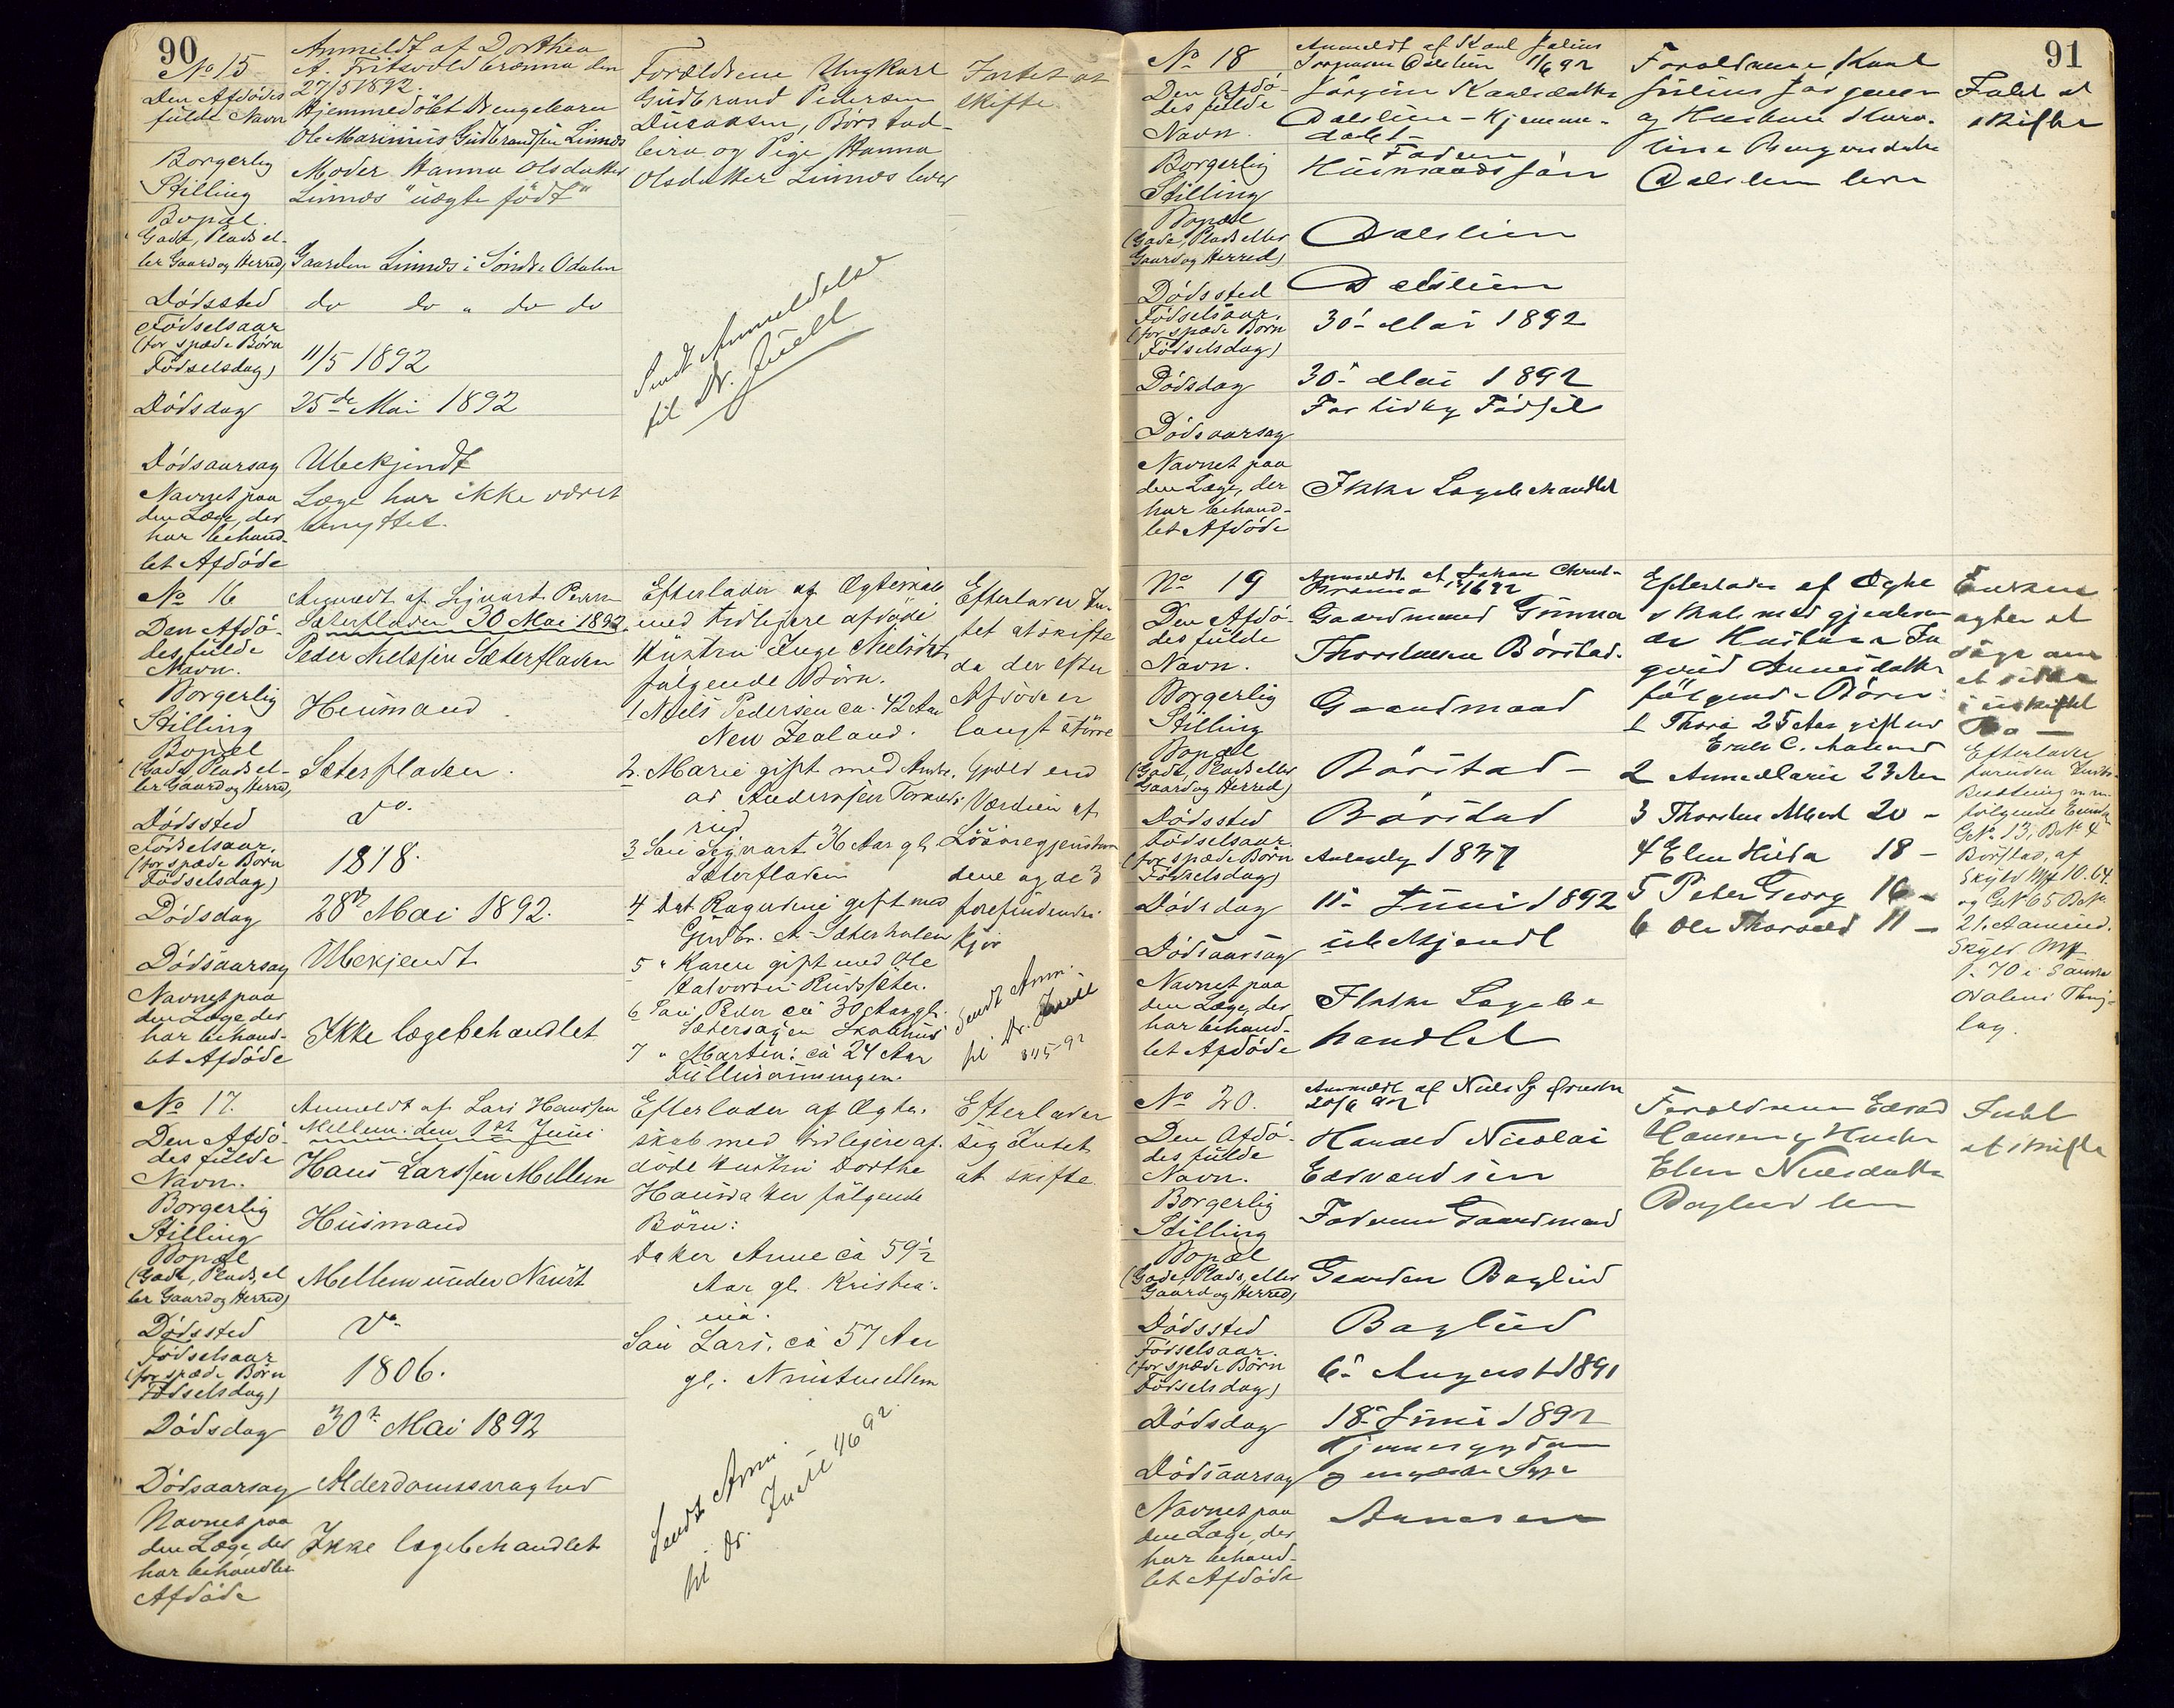 90
No 15
Anmeldt af Dorthea
A. Fritsvold brænna den
27/5 1892.
Den Afdødes
fulde Navn
Hjemmedøbt Drengebarn
Ole Marinius Gudbrandsen Linnæs
Borgerlig
Stilling
Moder Hanna Olsdatter
Linnæs "uægte født"
Bopæl.
Gade, Plads el-
ler Gaard og Herred)
Gaarden Linnæs i Søndre Odalen
Dødssted
do do " do do
Fødselsaar
(for spæde Børn
Fødselsdag)
11/5 1892
Dødsdag
25de Mai 1892
Dødsaarsag
Ubekjendt
Navnet paa
den Læge, der
har behand-
let Afdøde
Læge har ikke været
benyttet.
Forældrene Ungkarl
Gudbrand Pedersen
og Pige Hanna
Olsdatter Linnæs lever
Intet at
skifte.
Sendt Anmeldelse
til Dr. Juell
No 16
Anmeldt af Sigvart Peders
Sæterfladen 30 Mai 1892.
Den Afdø-
des fulde
Navn.
Peder Nielssen Sæterfladen
Borgerlig
Stilling
Husmand
Bopæl
(Gade, Plads el-
ler Gaard og Herred)
Sæterfladen.
Dødssted
do.
Fødselsaar.
(for spæde Børn
Fødselsdag)
1818.
Dødsdag
28de Mai 1892.
Dødsaarsag
Ubekjendt
Navnet paa
den Læge der
har behand-
let Afdøde
Ikke lægebehandlet
Efterlader af Ægteskab
med tidligere afdøde
Hustru Inge Nielsdtr
følgende Børn.
1 Niels Pedersen ca. 42 Aar
New Zealand.
2. Marie gift med
Anderssen
rud
3 Søn Sigvart 36 Aar gl.
Sæterfladen
4 Dat Ragndine gift med
Gudbr. A. Sæterholen
5 " Karen gift med Ole
Halvorsen Rudssæter.
6 Søn Peder ca 30 Aar gl.
7 " Martin: ca 24 Aar
Efterlader In-
tet at skifte
da der efter
Afdøde er
langt større
Gjæld end
Værdien af
Løsøregjenstan
dene og de 3
forefindende
Kjør
Sendt Anm.
til Dr. Juell
31/5-92
No 17.
Anmeldt af Lars Hanssen
Mellem. den 1st Juni
Den Afdø-
des fulde
Navn.
Hans Larssen Mellem
Borgerlig
Stilling
Husmand
Bopæl
(Gade, Plads, el
ler Gaard og Herred)
Mellem under Nust
Dødssted
Do
Fødselsaar
(for spæde Børn
Fødselsdag)
1806.
Dødsdag
30te Mai 1892
Dødsaarsag
Alderdomssvaghed
Navnet paa
den Læge, der
har behandlet
Afdøde
Ikke lægebehandlet
Efterlader af Ægte-
skab med tidligere af-
døde Hustru Dorthe
Hansdatter følgende
Børn:
Datter Anne ca 59½
Aar gl. Kristia-
nia.
Søn Lars, ca 57 Aar
gl. Nustmellem
Efterlader
sig Intet
at skifte
Sendt Anm.
til Dr. Juell 1/6 92
91
No 18
Anmeldt af Karl Julius
Jørgensen Dalslien 1/6 92
Den Afdø-
des fulde
Navn.
Jørgine Karlsdatter
Dalslien - Hjemme-
døbt -
Borgerlig
Stilling
Faderen
Husmandssøn
Bopæl
(Gade, Plads eller
Gaard og Herred)
Dalslien
Dødssted
Dalslien
Fødselsaar.
(for spæde Børn
Fødselsdag)
30' Mai 1892
Dødsdag
30' Mai 1892
Dødsaarsag
For tidlig Fødsel
Navnet paa
den Læge, der
har behand-
let Afdøde
Ikke Lægebehandlet
Forældrene Karl
Julius Jørgensen
og Hustru Karo-
line Bengersdatter
Dalslien lever
Intet at
skifte
No 19
Anmeldt af Johan Christ-
Den Afdø-
des fulde
Navn.
Gaardmand Gunnar
Thorstensen Børstad.
Borgerlig
Stilling
Gaardmand
Bopæl
(Gade, Plads eller
Gaard og Herred)
Børstad -
Dødssted
Børstad
Fødselsaar.
(for spæde Børn
Fødselsdag)
Dødsdag
11' Juni 1892
Dødsaarsag
ubekjendt
Navnet paa
den Læge, der
har behand-
let Afdøde
Ikke Lægebe
handlet
Efterlader af Ægte
skab med gjenleven
de Hustru In
geborg
følgende Børn:
1 Thora 25 Aar gift med
2 Anne Marie 23 Aar
3 Thorsten Albert 20 -
4 Elen Hilda 18 -
5 Peter Georg 16 -
6 Ole Thorvald 11 -
Enken
agter at
søge om
at sidde
i uskiftet
Bo -
Efterlader
foruden Indbo
Besætning m.m.
følgende Eiendom
GNo 13, BNo 4
Børstad, af
Skyld Mk 10.64.
og GNo 65 BNo
21. Aamund.
Skyld Mk
1.70 i Søndre
Odalens Thing-
lag.
No 20.
Anmeldt af
20/6 92
Den Afdø-
des fulde
Navn.
Harald Nicolai
Edvardsen
Borgerlig
Stilling
Faderen Gaardmand
Bopæl
(Gade, Plads, eller
Gaard og Herred)
Gaarden Baglund
Dødssted
Baglund
Fødselsaar.
(for spæde Børn
Fødselsdag)
6' August 1891
Dødsdag
18' Juni 1892
Dødsaarsag
Navnet paa
den Læge, der
har behand-
let Afdøde
Forældrene Edvard
Hansen og Hustru
Elen Nielsdatter
Baglund lever
Intet
at skifte